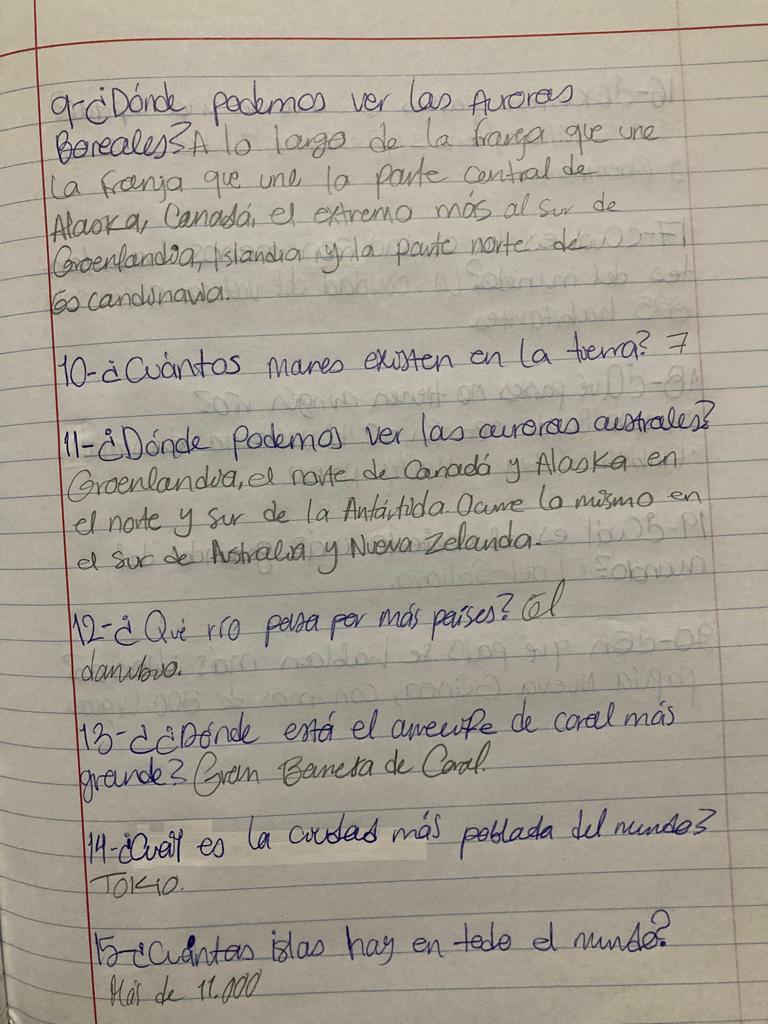 9-¿Dónde podemos ver las Auroras
Boreales? A lo largo de la franja que une
La franja que une la parte central de
Alaska, Canadá, el extremo más al sur de
Groenlandia, Islandia y la parte norte de
Escandinavia.
10-¿Cuántos mares existen en la tierra? 7
11-¿Dónde podemos ver las auroras australes?
Groenlandia, el norte de Canadá y Alaska en
el norte y sur de la Antártida. Ocurre lo mismo en
el sur de Astralia y Nueva Zelanda.
12-¿Qué río pasa por más países? El
danubio.
13-¿¿Dónde está el arrecife de coral más
grande? Gran Barrera de Coral.
14-¿Cuál es la ciudad más poblada del mundo?
TOKIO.
15-¿Cuántas islas hay en todo el mundo?
Más de 11.000